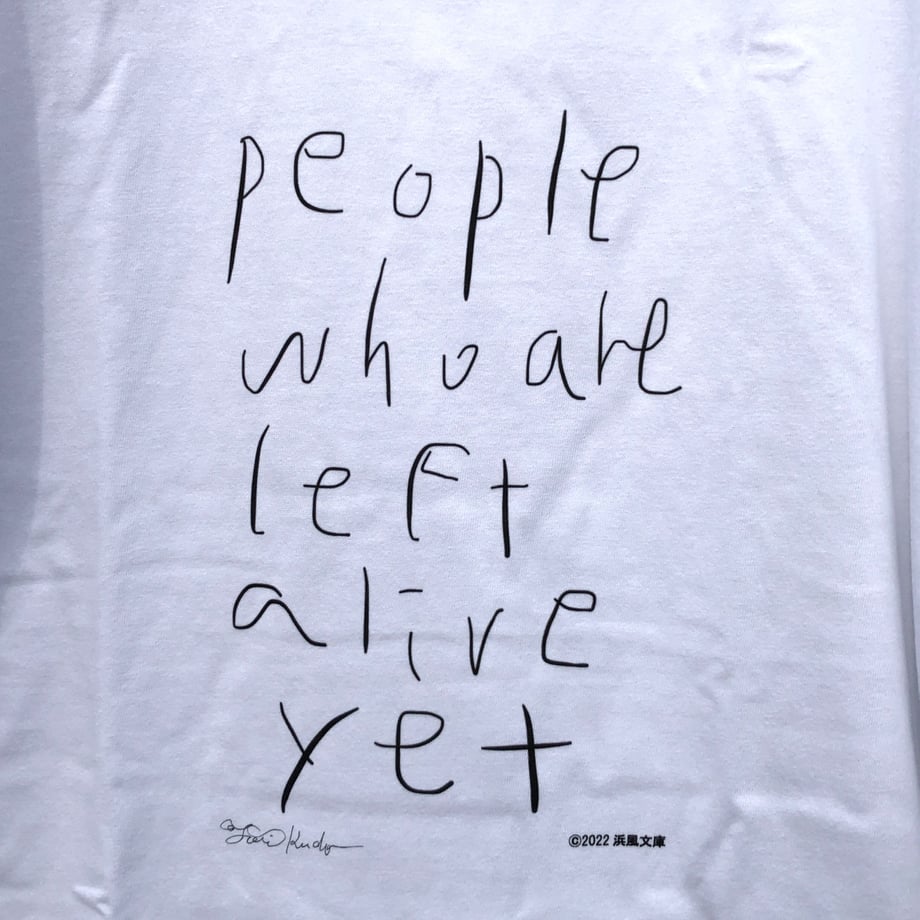 people
who are
left
alive
yet
©2022 浜風文庫